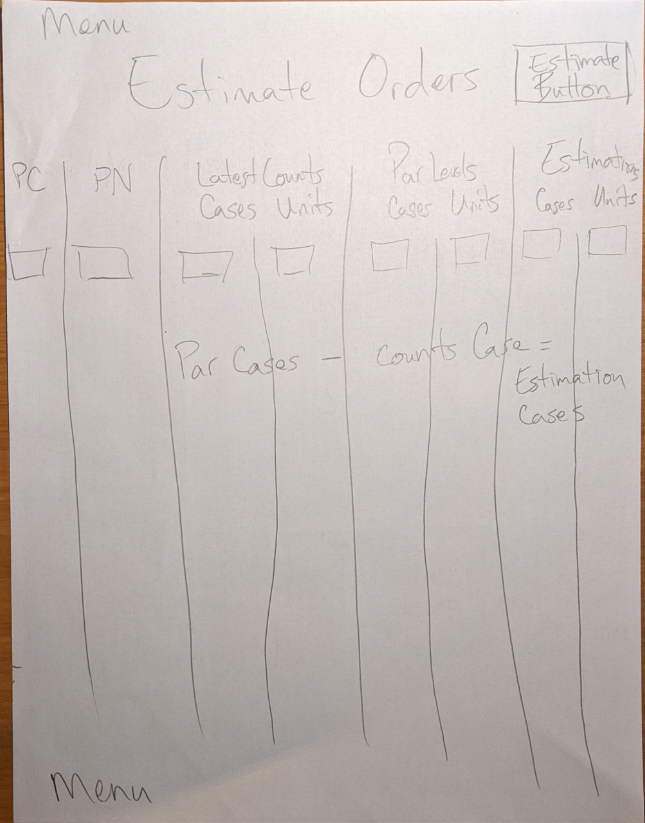 Menu
Estimate Orders
Estimate
Button
PC
PN
Latest Counts
Cases Units
Par Levels
Cases Units
Estimations
Cases Units
Par Cases - Counts Case =
Estimation
Cases
Menu